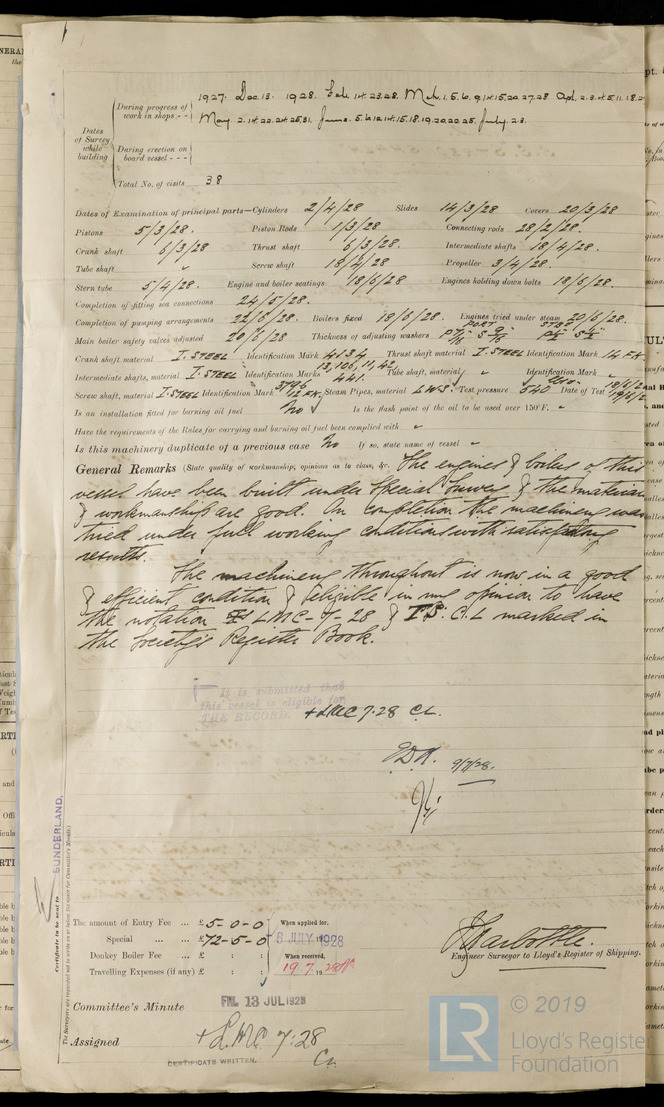 1927. Dec. 13. 1928. Feb. 14. 23. 28. Mch. 1. 5. 6. 9. 14. 15. 20. 27. 28. Apl. 2. 3. 4. 5. 11. 18. 2
During progress of work in shops - -
May. 2. 14. 22. 24. 25. 31. June. 5. 6. 12. 14. 15. 18. 19. 20. 22. 25. July. 2. 3.
Dates of Survey while building
During erection on board vessel - - -
Total No. of visits 38
Dates of Examination of principal parts—Cylinders 2/4/28 Slides 14/3/28 Covers 20/3/28
Pistons 5/3/28. Piston Rods 1/3/28 Connecting rods 28/2/28.
Crank shaft 6/3/28 Thrust shaft 6/3/28. Intermediate shafts 18/4/28.
Tube shaft " Screw shaft 18/4/28 Propeller 3/4/28.
Stern tube 5/4/28. Engine and boiler seatings 18/6/28 Engines holding down bolts 18/6/28.
Completion of fitting sea connections 24/5/28.
Completion of pumping arrangements 22/6/28. Boilers fixed 18/6/28. Engines tried under steam 20/6/28.
Main boiler safety valves adjusted 20/6/28 Thickness of adjusting washers PORT STBD
Crank shaft material I. STEEL Identification Mark 4134 Thrust shaft material I. STEEL Identification Mark 14 F.K.
Intermediate shafts, material I. STEEL Identification Marks 13,106,11,42, 441. Tube shaft, material " Identification Mark "
Screw shaft, material I. STEEL Identification Mark 3796 12 F.K. Steam Pipes, material L.W.S. Test pressure 540 Date of Test
Is an installation fitted for burning oil fuel No Is the flash point of the oil to be used over 150°F. "
Have the requirements of the Rules for carrying and burning oil fuel been complied with "
Is this machinery duplicate of a previous case No If so, state name of vessel "
General Remarks (State quality of workmanship, opinions as to class, &c. The engines & boilers of this
vessel have been built under Special Survey & the materials
& workmanship are good. On completion the machinery was
tried under full working conditions with satisfactory
results.
The machinery throughout is now in a good
& efficient condition & eligible in my opinion to have
the notation LMC-7-28 & T.S. C.L marked in
the Society's Register Book.
It is submitted that
this vessel is eligible for
THE RECORD. + LMC 7.28 CL.
9/7/28.
SUNDERLAND.
Certificate to be sent to
The amount of Entry Fee ... £ 5-0-0 When applied for,
Special ... ... £ 72-5-0 6 JULY 1928
Donkey Boiler Fee ... £ : : When received,
Travelling Expenses (if any) £ : : 19.7.1928
Engineer Surveyor to Lloyd's Register of Shipping.
Committee's Minute FRI. 13 JUL 1928
Assigned + LMC 7:28
CL
CERTIFICATE WRITTEN.
LR © 2019
Lloyd's Register
Foundation